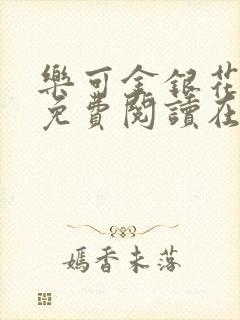 樂可金銀花
免費閱讀在
嫣香未落